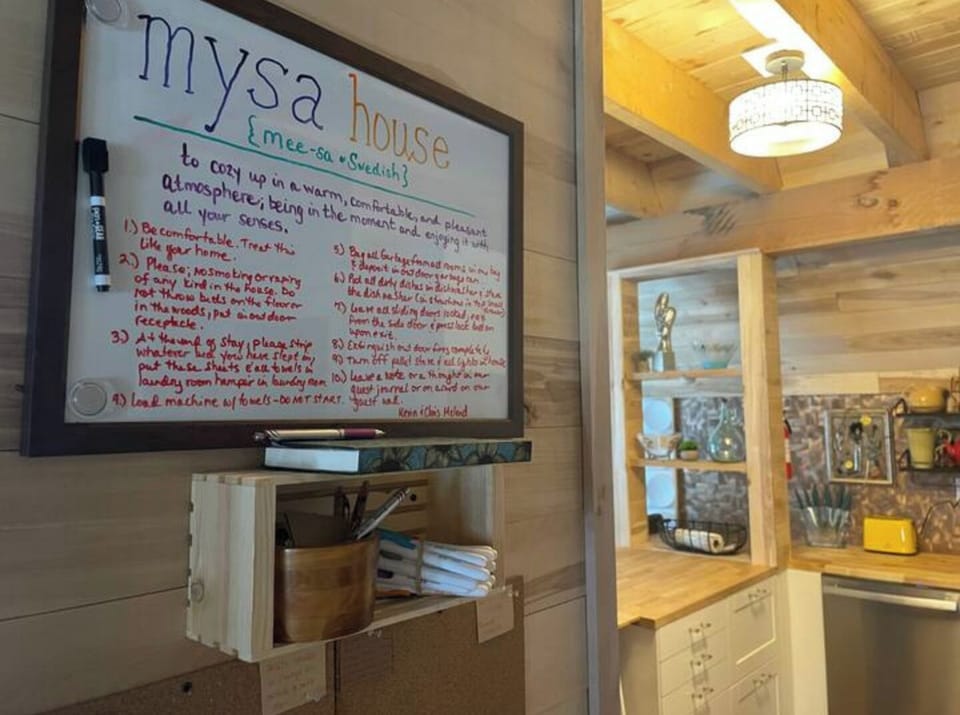 mysa house
{mee-sa • Swedish}
to cozy up in a warm, comfortable, and pleasant
atmosphere; being in the moment and enjoying it with
all your senses.
1.) Be comfortable. Treat this
like your home.
2.) Please; no smoking or vaping
of any kind in the house. Do
not throw butts on the floor or
in the woods, put in outdoor
receptacle.
3.) At the end of stay, please strip
whatever bed you have slept in,
put these sheets & all towels in
laundry room hamper in laundry room
4.) Load machine w/ towels - DO NOT START.
5.) Bag all garbage from all rooms in one bag
& deposit in outdoor garbage can.
6.) Put all dirty dishes in dishwasher & start
the dishwasher
7.) Leave all sliding doors locked;
from the side door & press lock button
upon exit.
8.) Extinguish outdoor fires completely
9.) Turn off pellet stove & all lights in house
10.) Leave a note or a thought in our
guest journal or on a card on our
guest wall.
Kevin & Chris
EXPO